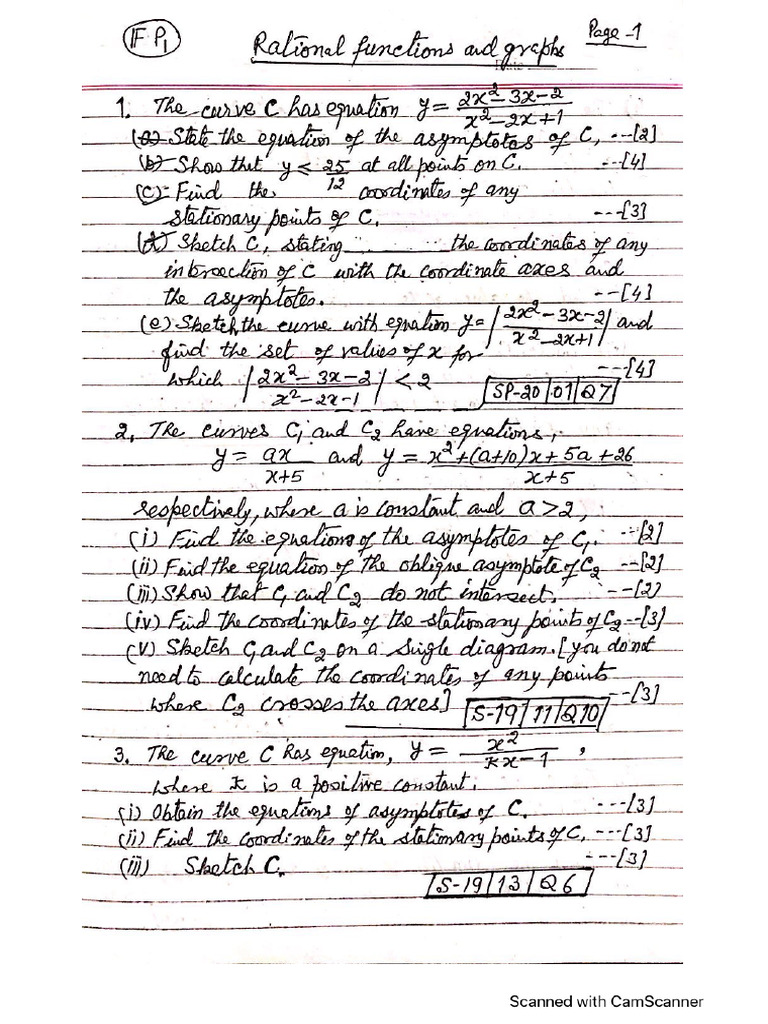 FP₁
Rational functions and graphs Page-1
1. The curve C has equation y = (2x²-3x-2)/(x²-2x+1)
(a) State the equation of the asymptotes of C, ---[2]
(b) Show that y ≤ 25/12 at all points on C. ---[4]
(c) Find the coordinates of any
stationary points of C. ---[3]
(d) Sketch C, stating the coordinates of any
intersection of C with the coordinate axes and
the asymptotes. ---[4]
(e) Sketch the curve with equation y = |(2x²-3x-2)/(x²-2x+1)| and
find the set of values of x for
which |(2x²-3x-2)/(x²-2x-1)| < 2 ---[4]
SP-20|01|Q7
2, The curves C₁ and C₂ have equations,
y = ax/(x+5) and y = (x²+(a+10)x+5a+26)/(x+5)
respectively, where a is constant and a>2,
(i) Find the equations of the asymptotes of C₁. ---[2]
(ii) Find the equation of the oblique asymptote of C₂ ---[2]
(iii) Show that C₁ and C₂ do not intersect, ---[2]
(iv) Find the coordinates of the stationary points of C₂ ---[3]
(v) Sketch C₁ and C₂ on a single diagram. [you do not
need to calculate the coordinates of any points
where C₂ crosses the axes] ---[3]
S-19|11|Q10
3. The curve C has equation, y = x²/(kx-1),
where k is a positive constant.
(i) Obtain the equations of asymptotes of C. ---[3]
(ii) Find the coordinates of the stationary points of C, ---[3]
(iii) Sketch C. ---[3]
S-19|13|Q6
Scanned with CamScanner